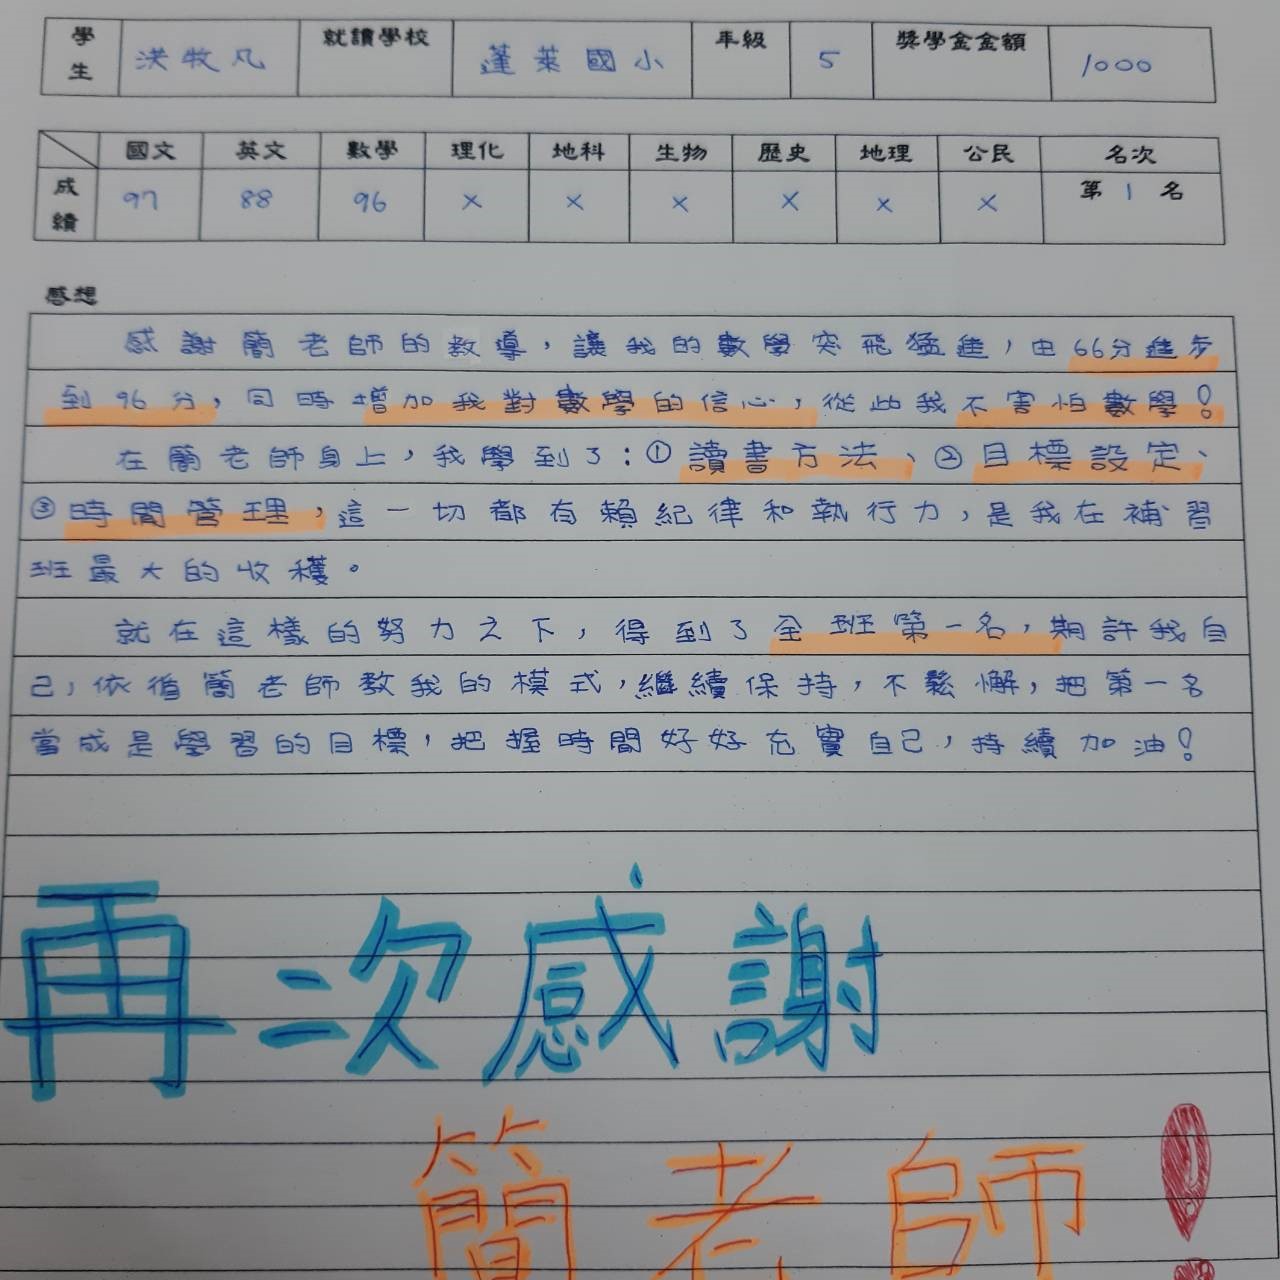 學生 洪牧凡 就讀學校 蓬萊國小 年級 5 獎學金金額 1000
國文 英文 數學 理化 地科 生物 歷史 地理 公民 名次
成績 97 88 96 × × × × × × 第 1 名
感想
感謝簡老師的教導，讓我的數學突飛猛進，由66分進步
到96分，同時增加我對數學的信心，從此我不害怕數學！
在簡老師身上，我學到了：①讀書方法、②目標設定、
③時間管理，這一切都有賴紀律和執行力，是我在補習
班最大的收穫。
就在這樣的努力之下，得到了全班第一名，期許我自
己，依循簡老師教我的模式，繼續保持，不鬆懈，把第一名
當成是學習的目標，把握時間好好充實自己，持續加油！
再次感謝
簡老師！